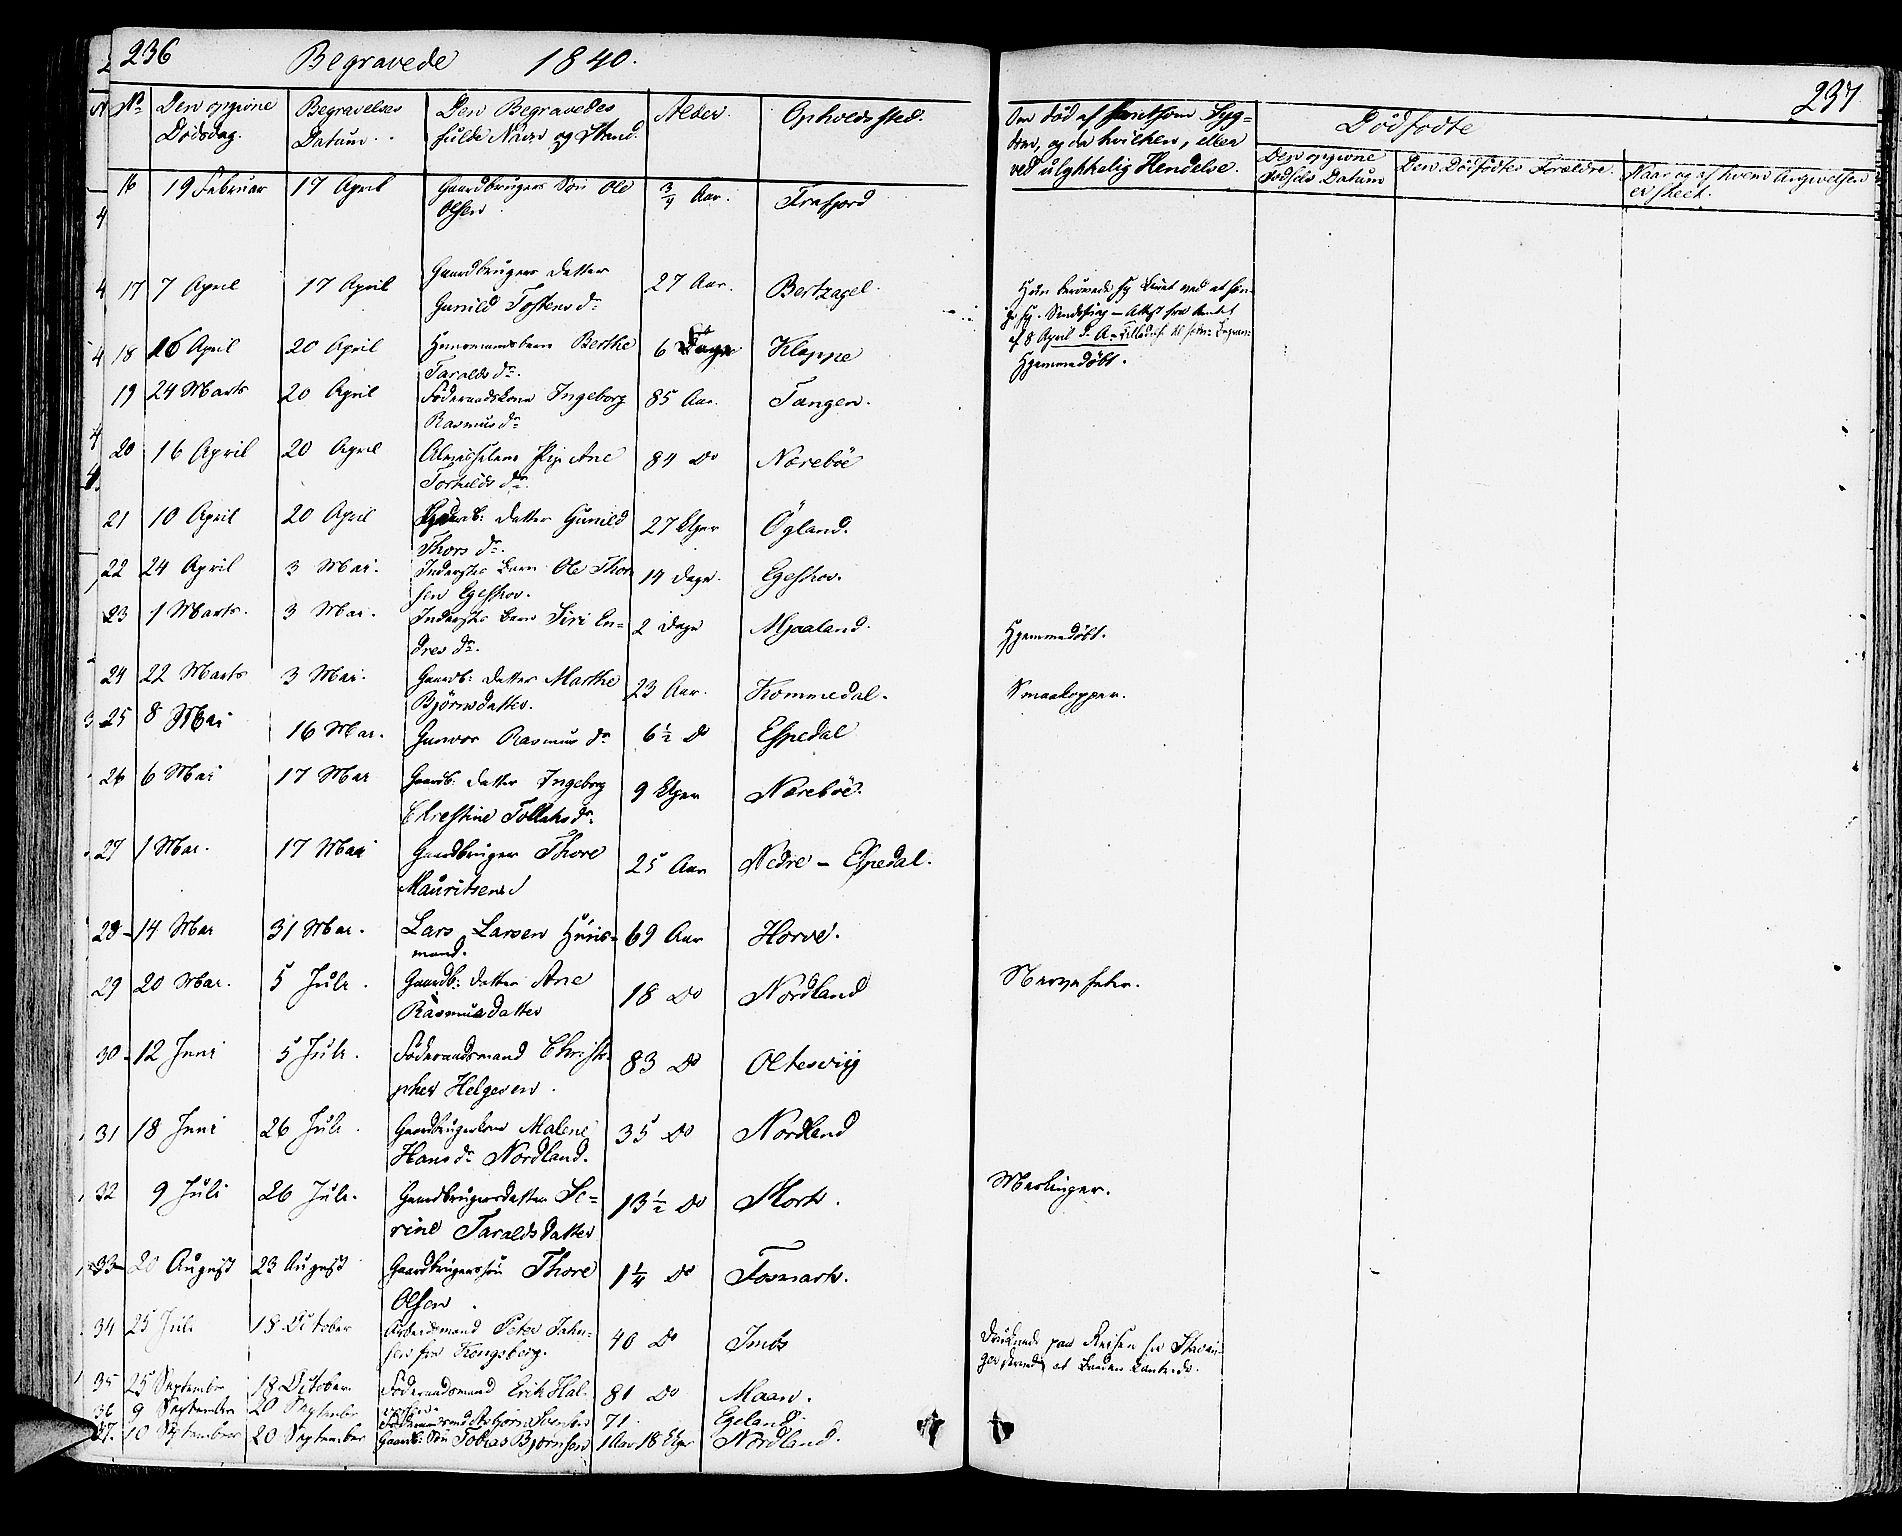 236 Begravede 1840.
237
No. Den opgivne Dødsdag. Begravelses Datum. Den Begravedes fulde Navn og Stand. Alder. Opholdssted. Om død af smitsom Syg=
dom, og da hvilken, eller
ved ulykkelig Hendelse. Dødfødte
Den opgivne Fødsels Datum Den Dødfødtes Forældre. Naar og af hvem Angivelsen er skeet.
16 19 Februar 17 April Gaardbrugers Søn Ole
Olsen 3/4 Aar. Frafjord
17 7 April 17 April Gaardbrugers datter
Gunild Tostens dr 27 Aar. Bertzagel. Hun berøvede sig Livet ved at hæn-
ge sig. Attest fra Amtet
af 8 April d. A.
18 16 April 20 April Huusmandsbarn Berthe
Taralds dr. 6 Dage Kloppe Hjemmedøbt.
19 24 Marts 20 April Føderaadskone Ingeborg
Rasmus dr 85 Aar. Tangen.
20 16 April 20 April Almisselem Pige Ane
Torkelds dr. 84 Do Nærebøe
21 10 April 20 April Gaardb: datter Gunild
Thors dr. 27 Uger Øgland.
22 24 April 3 Mai. Inderstes Barn Ole Thor
sen Egeskov. 14 dage. Egeskov.
23 1 Marts. 3 Mai. Inderstes Barn Siri En=
dres dr. 2 dage Mjaaland. Hjemmedøbt.
24 22 Marts 3 Mai. Gaardb: datter Marthe
Bjørnsdatter. 23 Aar. Kommedal. Smaakopper.
25 8 Mai 16 Mai. Gunvor Rasmus dr 6 1/2 Do Espedal
26 6 Mai 17 Mai Gaardb: datter Ingeborg
Christine Tollaks dr. 9 Uger Nærebøe.
27 1 Mai. 17 Mai Gaardbruger Thore
Mauritsen 25 Aar Nedre - Espedal.
28 14 Mai 31 Mai. Lars Larsen Huus=
mand. 69 Aar Horve.
29 20 Mai. 5 Juli. Gaardb: datter Ane
Rasmusdatter 18 Do Nordland Nervefeber.
30 12 Juni 5 Juli. Føderaadsmand Christo-
pher Helgesen. 83 Do Oltesvig
31 18 Juni 26 Juli. Gaardbrugerkone Malene
Hans dr Nordland. 35 Do Nordland
32 9 Juli 26 Juli. Gaardbrugersdatter Se=
rine Taraldsdatter 13 1/2 Do Mork. Meslinger.
33 20 August 23 August Gaardbrugerssøn Thore
Olsen 1 1/4 Do Fosmark.
34 25 Juli 18 October Arbeidsmand Peter Jahn-
sen fra Kongsberg. 40 Do Imbs Druknede paa Reisen fra Stavan-
ger at Baaden kantrede.
35 25 September 18 October. Føderaadsmand Erik Hal-
vorsen 81 Do Maan.
36 9 September 20 September Føderaadsmand Asbjørn Svensen 71. Egeland.
37. 10 September 20 September Gaardb: Søn Tobias Bjørnsen 1 Aar 18 Uger Nordland.